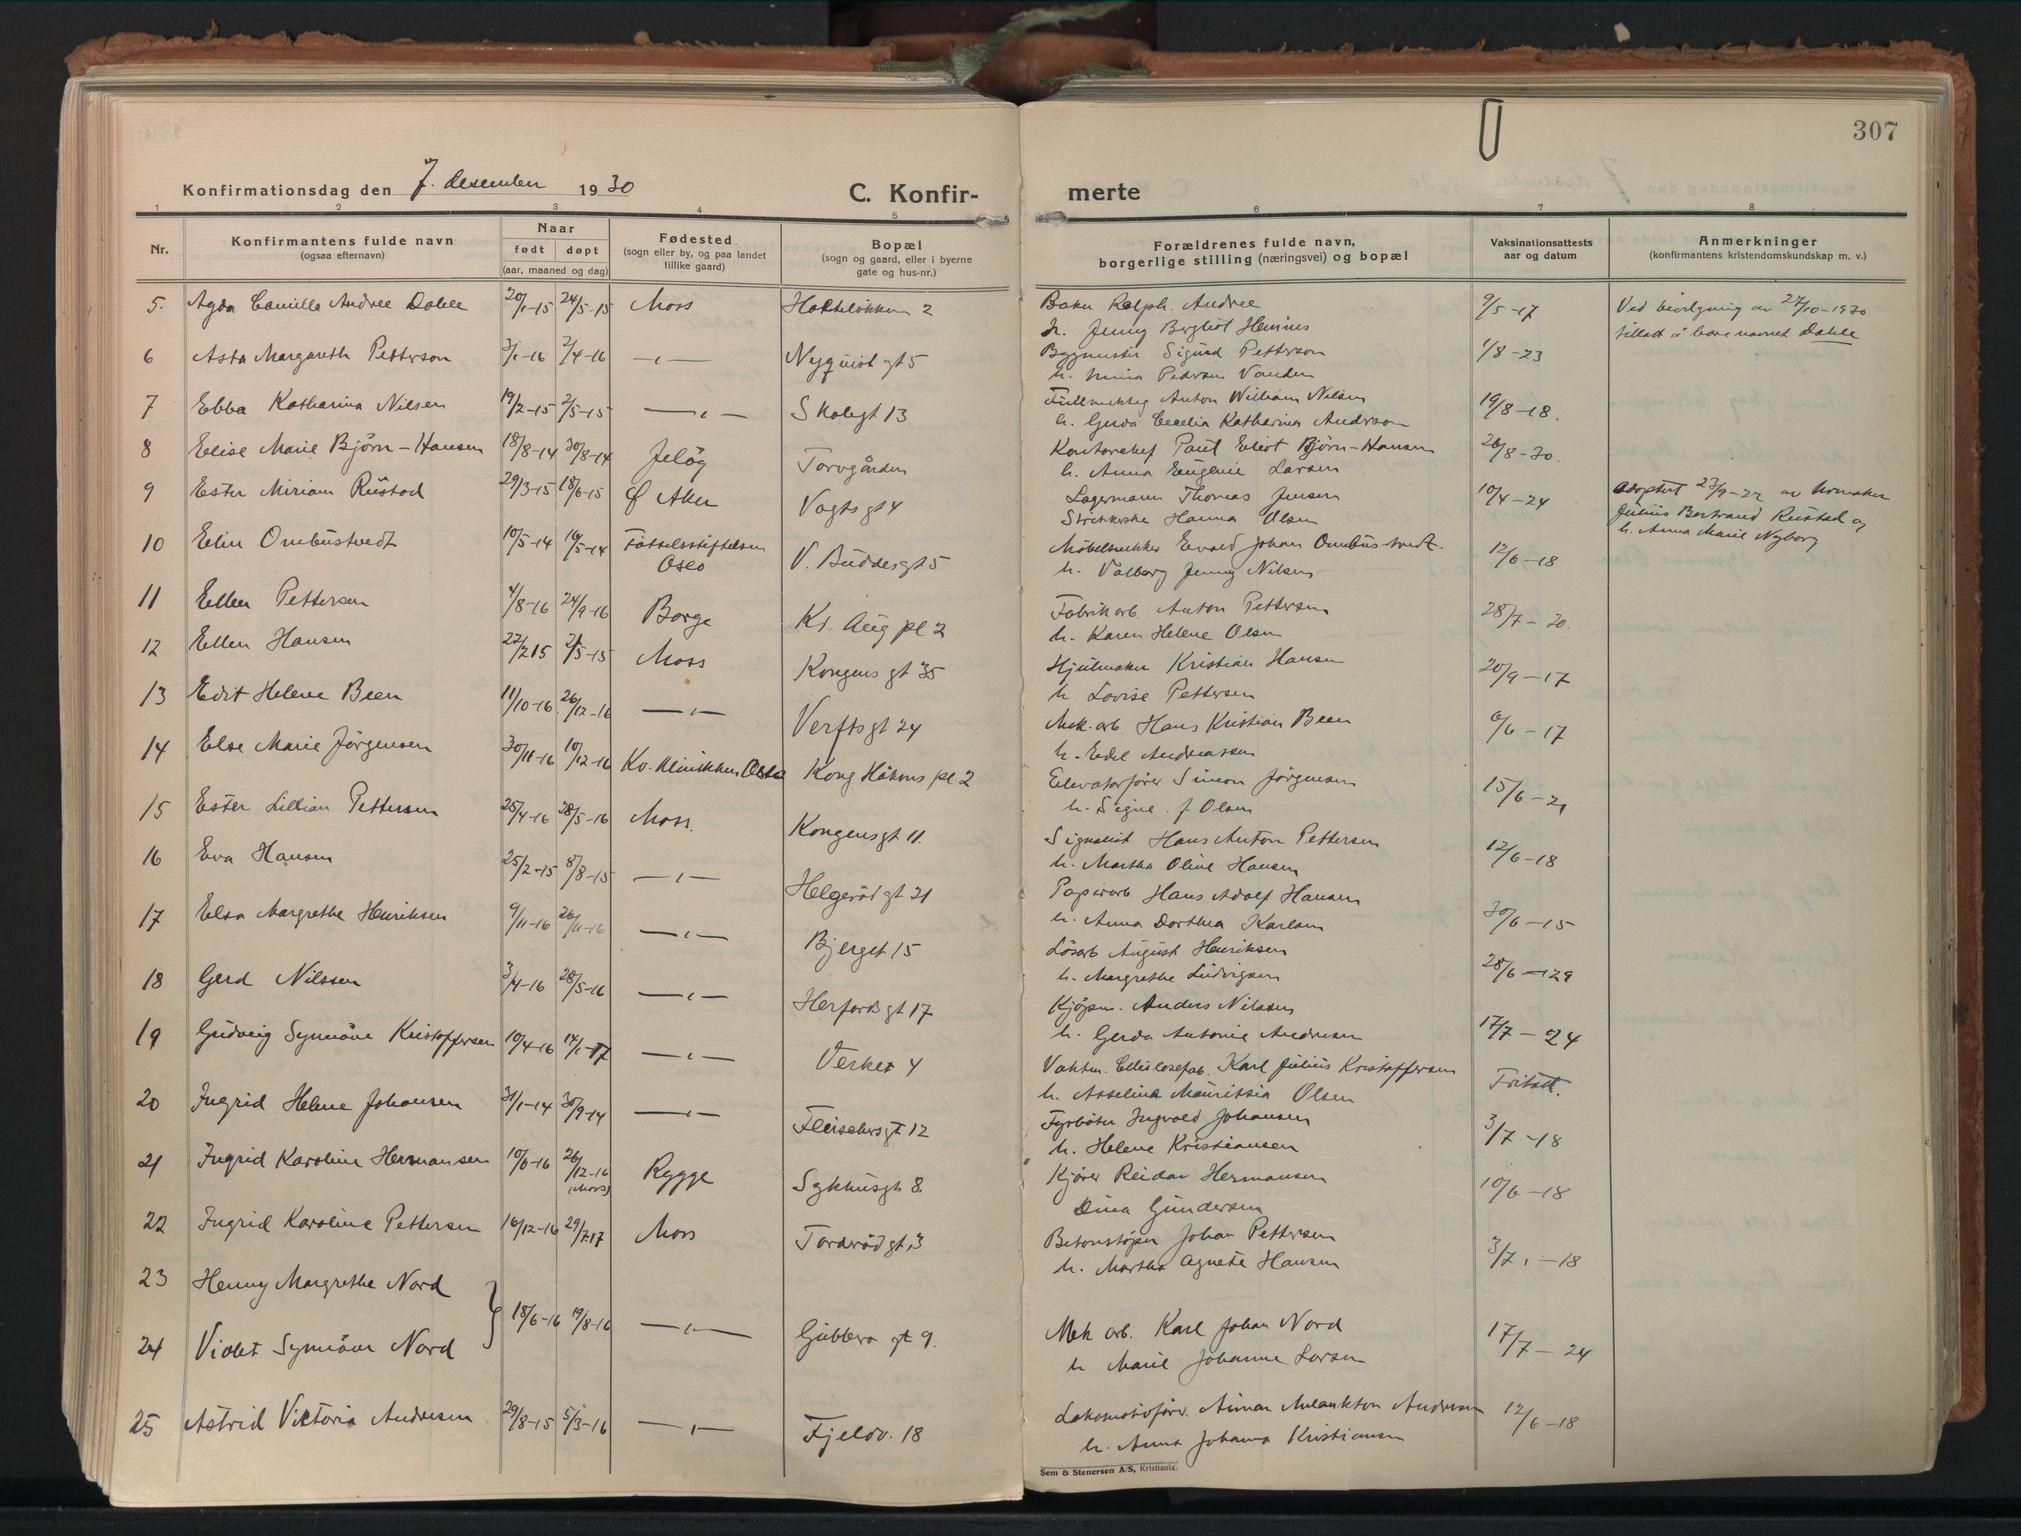 307
Konfirmationsdag den 7. desember 1930
C. Konfir-
merte
1 2 3 4 5 6 7 8
Nr.
Konfirmantens fulde navn
(ogsaa efternavn)
Naar
født døpt
(aar, maaned og dag)
Fødested
(sogn eller by, og paa landet
tillike gaard)
Bopæl
(sogn og gaard, eller i byerne
gate og hus-nr.)
Forældrenes fulde navn,
borgerlige stilling (næringsvei) og bopæl
Vaksinationsattests
aar og datum
Anmerkninger
(konfirmantens kristendomskundskap m. v.)
5. Agda Camilla Andree Dahle 20/1-15 24/5-15 Moss 2 Baker Ralph Andree 9/5-17 Ved bevilgning av 27/10-1930
h. Jenny Bergliot tillatt å bære navnet Dahle
6 Asta Margareth Petterson 3/1-16 2/4-16 —"— Nyquist gt 5 Bygmester Sigurd Petterson 1/8-23
h. Pedersen
7 Ebba Katharina Nilsen 19/2-15 2/5-15 —"— Skolegt 13 Fullmektig Anton William Nilsen 19/8-18.
h. Gerda Cecelia Katharina Anderson
8 Elise Marie Bjørn-Hansen 18/8-14 30/8-14 Jeløy Torvgården Kontorchef Paul Eliot Bjørn-Hansen 26/8-30.
h. Anna Eugenie Larsen
9 Ester Miriam Rustad 29/3-15 18/6-15 Ø Aker Vogts gt 4 Lagermann Thomas Jensen 10/4-24 adoptert 23/9-22 av
Hanna Olsen Julius Bertrand Rustad og
h. Anna Marie Nyborg
10 Elin Ombustvedt 10/5-14 16/5-14 Fødselsstiftelsen
Oslo V. Buddes gt 5 Møbelsnekker Evald Johan Ombustvedt. 12/6-18
h. Valborg Jenny Nilsen
11 Ellen Pettersen 4/8-16 24/9-16 Borge Kr. Aug pl 2 Fabrikarb. Anton Pettersen 28/7-20.
h. Karen Helene Olsen
12 Ellen Hansen 22/2 15 2/5-15 Moss Kongens gt 35 Hjulmaker Kristian Hansen 20/9-17
h. Lovise Pettersen
13 Edit Helene Been 11/10-16. 26/12-16 —"— Verftsgt 24 Mek. arb. Hans Kristian Been 6/6-17
h. Edel Andreassen
14 Else Marie Jørgensen 30/11-16 10/12-16 Kv. klinikken Oslo Kong Håkons pl 2 Elevatorfører Simon Jørgensen 15/6-21
h. Signe f. Olsen
15 Ester Lillian Pettersen 25/4-16 28/5-16 Moss. Kongensgt 11. Signalist Hans Anton Pettersen 12/6-18
h. Martha Oline Hansen
16 Eva Hansen 25/2-15 8/8-15 —"— Helgerødgt 21 Papirarb Hans Adolf Hansen 30/6-15
h. Anna Dorthea Karlsen
17 Elsa Margrethe Henriksen 9/11-16 26/11-16 —"— Bjerget 15 Løsarb August Henriksen 28/6-29
h. Margrethe Ludvigsen
18 Gerd Nilssen 3/4-16 28/5-16 —"— Herfordsgt 17 Kjøpm. Anders Nilssen 17/7-24
h. Gerda Antonie Andresen
19 Gudveig Synnøve Kristoffersen 10/4-16 14/1-17 —"— Verket 4 Vaktm. Cellulosefab. Karl Julius Kristoffersen Fritatt.
h. Asseline Mauritsia Olsen
20 Ingrid Helene Johansen 31/1-14 30/9-14 —"— Fleischersgt 12 Fyrbøter Ingvald Johansen 3/7-18
h. Helene Kristiansen
21 Ingrid Karoline Hermansen 10/6-16 26/12-16
(Moss) Rygge Sykhusgt 8. Kjører Reidar Hermansen 10/6-18
Dina Gundersen
22 Ingrid Karoline Pettersen 16/12-16 29/7 17 Moss Tordrødgt 3 Betonstøper Johan Pettersen 3/7.-18
h. Martha Agnete Hansen
23 Henny Margrethe Nord
24 Violet Synnøve Nord } 18/6-16 19/8-16 —"— Gubbero gt 9. Mek arb. Karl Johan Nord 17/7-24
h Marie Johanne Larsen
25 Astrid Viktoria Andresen 29/8-15 5/3-16 —"— Fjeldv. 18 Lokomotivfører Melankton Andresen 12/6-18
h. Anna Johanna Kristiansen
Sem & Stenersen A/S, Kristiania.